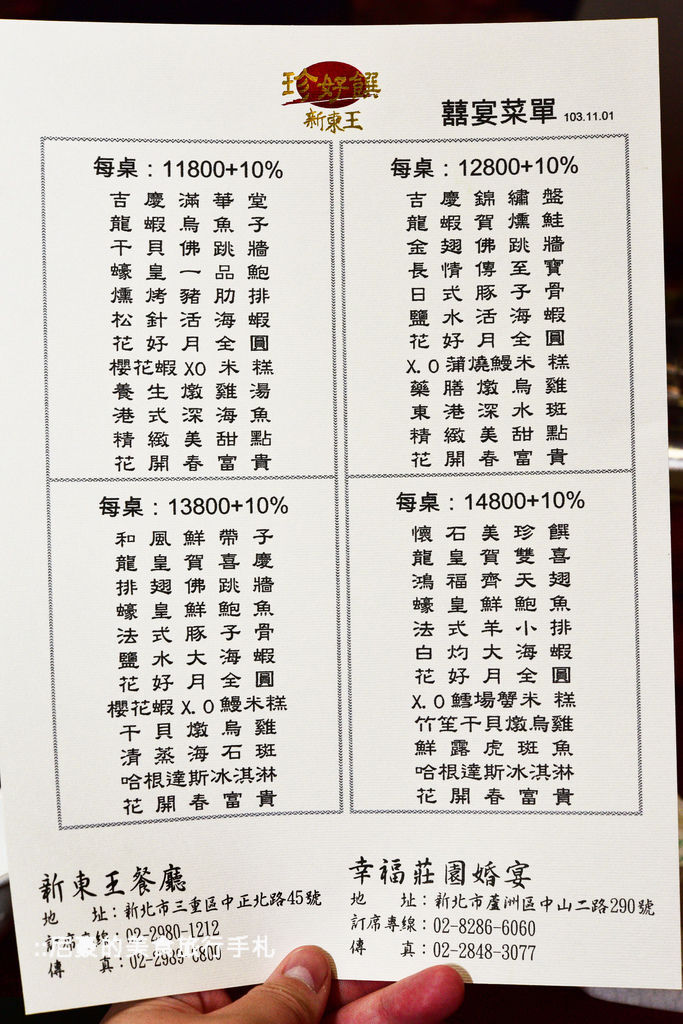 珍好饌
新東王
囍宴菜單 103.11.01
每桌：11800+10%
吉慶滿華堂
龍蝦烏魚子
干貝佛跳牆
蠔皇一品鮑
燻烤豬肋排
松針活海蝦
花好月全圓
櫻花蝦XO米糕
養生燉雞湯
港式深海魚
精緻美甜點
花開春富貴
每桌：12800+10%
吉慶錦繡盤
龍蝦賀燻鮭
金翅佛跳牆
長情傳至寶
日式豚子骨
鹽水活海蝦
花好月全圓
X.O蒲燒鰻米糕
藥膳燉烏雞
東港深水斑
精緻美甜點
花開春富貴
每桌：13800+10%
和風鮮帶子
龍皇賀喜慶
排翅佛跳牆
蠔皇鮮鮑魚
法式豚子骨
鹽水大海蝦
花好月全圓
櫻花蝦X.O鰻米糕
干貝燉烏雞
清蒸海石斑
哈根達斯冰淇淋
花開春富貴
每桌：14800+10%
懷石美珍饌
龍皇賀雙喜
鴻福齊天翅
蠔皇鮮鮑魚
法式羊小排
白灼大海蝦
花好月全圓
X.O鱈場蟹米糕
竹笙干貝燉烏雞
鮮露虎斑魚
哈根達斯冰淇淋
花開春富貴
新東王餐廳
地 址：新北市三重區中正北路45號
訂席專線：02-2980-1212
傳 真：02-2985-0800
幸福莊園婚宴
地 址：新北市蘆洲區中山二路290號
訂席專線：02-8286-6060
傳 真：02-2848-3077
的美食旅行手札